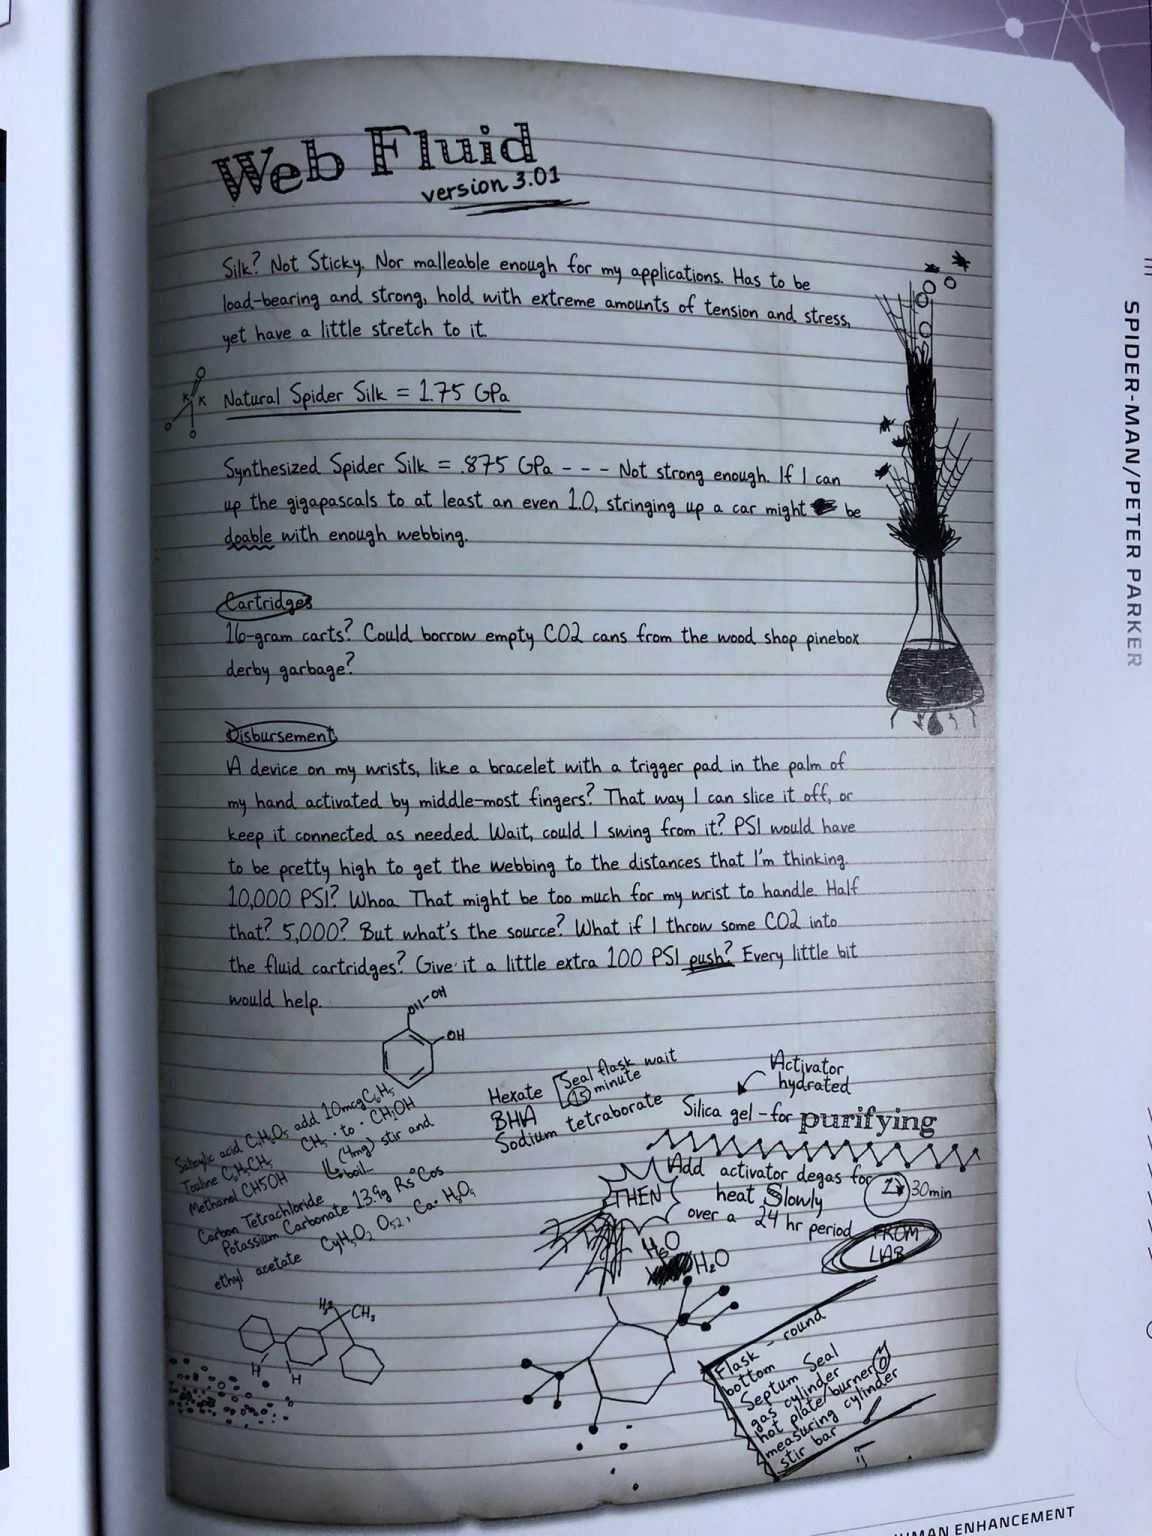 Web Fluid
version 3.01
Silk? Not Sticky. Nor malleable enough for my applications. Has to be
load-bearing and strong, hold with extreme amounts of tension and stress,
yet have a little stretch to it.
Natural Spider Silk = 1.75 GPa
Synthesized Spider Silk = .875 GPa - - - Not strong enough. If I can
up the gigapascals to at least an even 1.0, stringing up a car might be
doable with enough webbing.
Cartridges
16-gram carts? Could borrow empty CO2 cans from the wood shop pinebox
derby garbage?
Disbursement
A device on my wrists, like a bracelet with a trigger pad in the palm of
my hand activated by middle-most fingers? That way I can slice it off, or
keep it connected as needed. Wait, could I swing from it? PSI would have
to be pretty high to get the webbing to the distances that I'm thinking.
10,000 PSI? Whoa. That might be too much for my wrist to handle. Half
that? 5,000? But what's the source? What if I throw some CO2 into
the fluid cartridges? Give it a little extra 100 PSI push? Every little bit
would help.
OH-OH
OH
Salicylic acid add 10mcg
Touline to CH3OH
Methanol CH5OH (4mg) stir and
boil
Carbon Tetrachloride
Potassium Carbonate 13.9g
ethyl acetate
H
H
CH3
Hexate
BHA
Sodium tetraborate
Seal flask wait
15 minute
Activator
hydrated
Silica gel - for purifying
THEN
Add activator degas for
30min
heat Slowly
over a 24 hr period
FROM
LAB
H2O
Flask - round
bottom
Septum Seal
gas cylinder
hot plate/burner
measuring cylinder
stir bar
SPIDER-MAN/PETER PARKER
HUMAN ENHANCEMENT